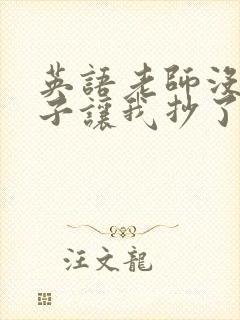 英語老師沒
子讓我抄了
汪文龍